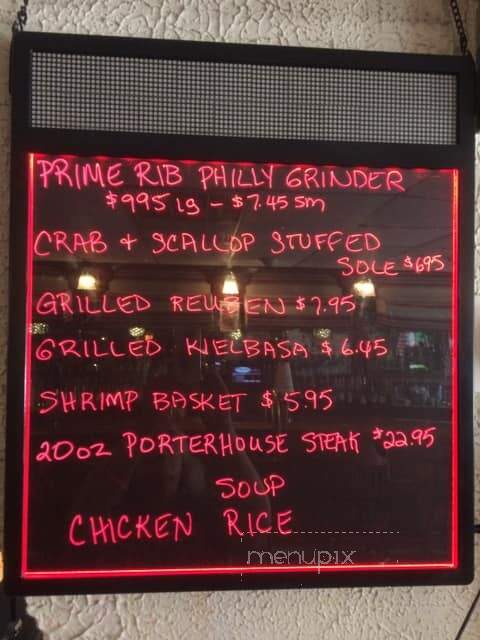 PRIME RIB PHILLY GRINDER
$995 lg - $7.45 sm
CRAB + SCALLOP STUFFED
SOLE $695
GRILLED REUBEN $7.95
GRILLED KIELBASA $6.45
SHRIMP BASKET $5.95
20oz PORTERHOUSE STEAK $22.95
SOUP
CHICKEN RICE
menupix